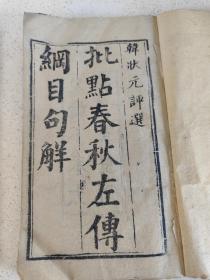 韓狀元評選
批點春秋左傳
綱目句解